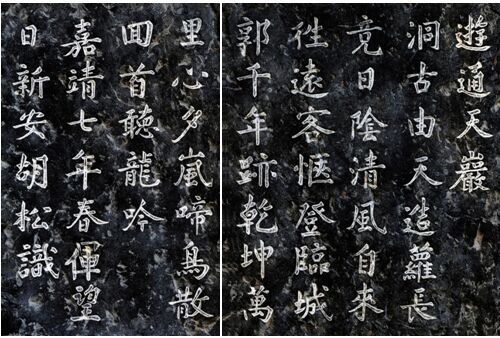 遊通天巖
洞古由天造蘿長
竟日陰清風自來
徃遠客愜登臨城
郭千年跡乾坤萬
里心夕嵐啼鳥散
囬首聽龍吟
嘉靖七年春望
日新安胡松識